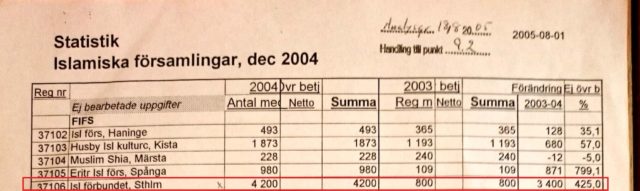 Statistik
Islamiska församlingar, dec 2004
2005-08-01
Handling till punkt 9.2
Reg nr Ej bearbetade uppgifter 2004 Övr betj 2003 betj Förändring Ej övr b
Antal med Netto Summa Reg m Netto Summa 2003-04 %
FIFS
37102 Isl förs, Haninge 493 493 365 365 128 35,1
37103 Husby Isl kulturc, Kista 1 873 1873 1 193 1 193 680 57,0
37104 Muslim Shia, Märsta 228 228 240 240 -12 -5,0
37105 Eritr Isl förs, Spånga 980 980 109 109 871 799,1
37106 Isl förbundet, Sthlm x 4 200 4200 800 800 3 400 425,0